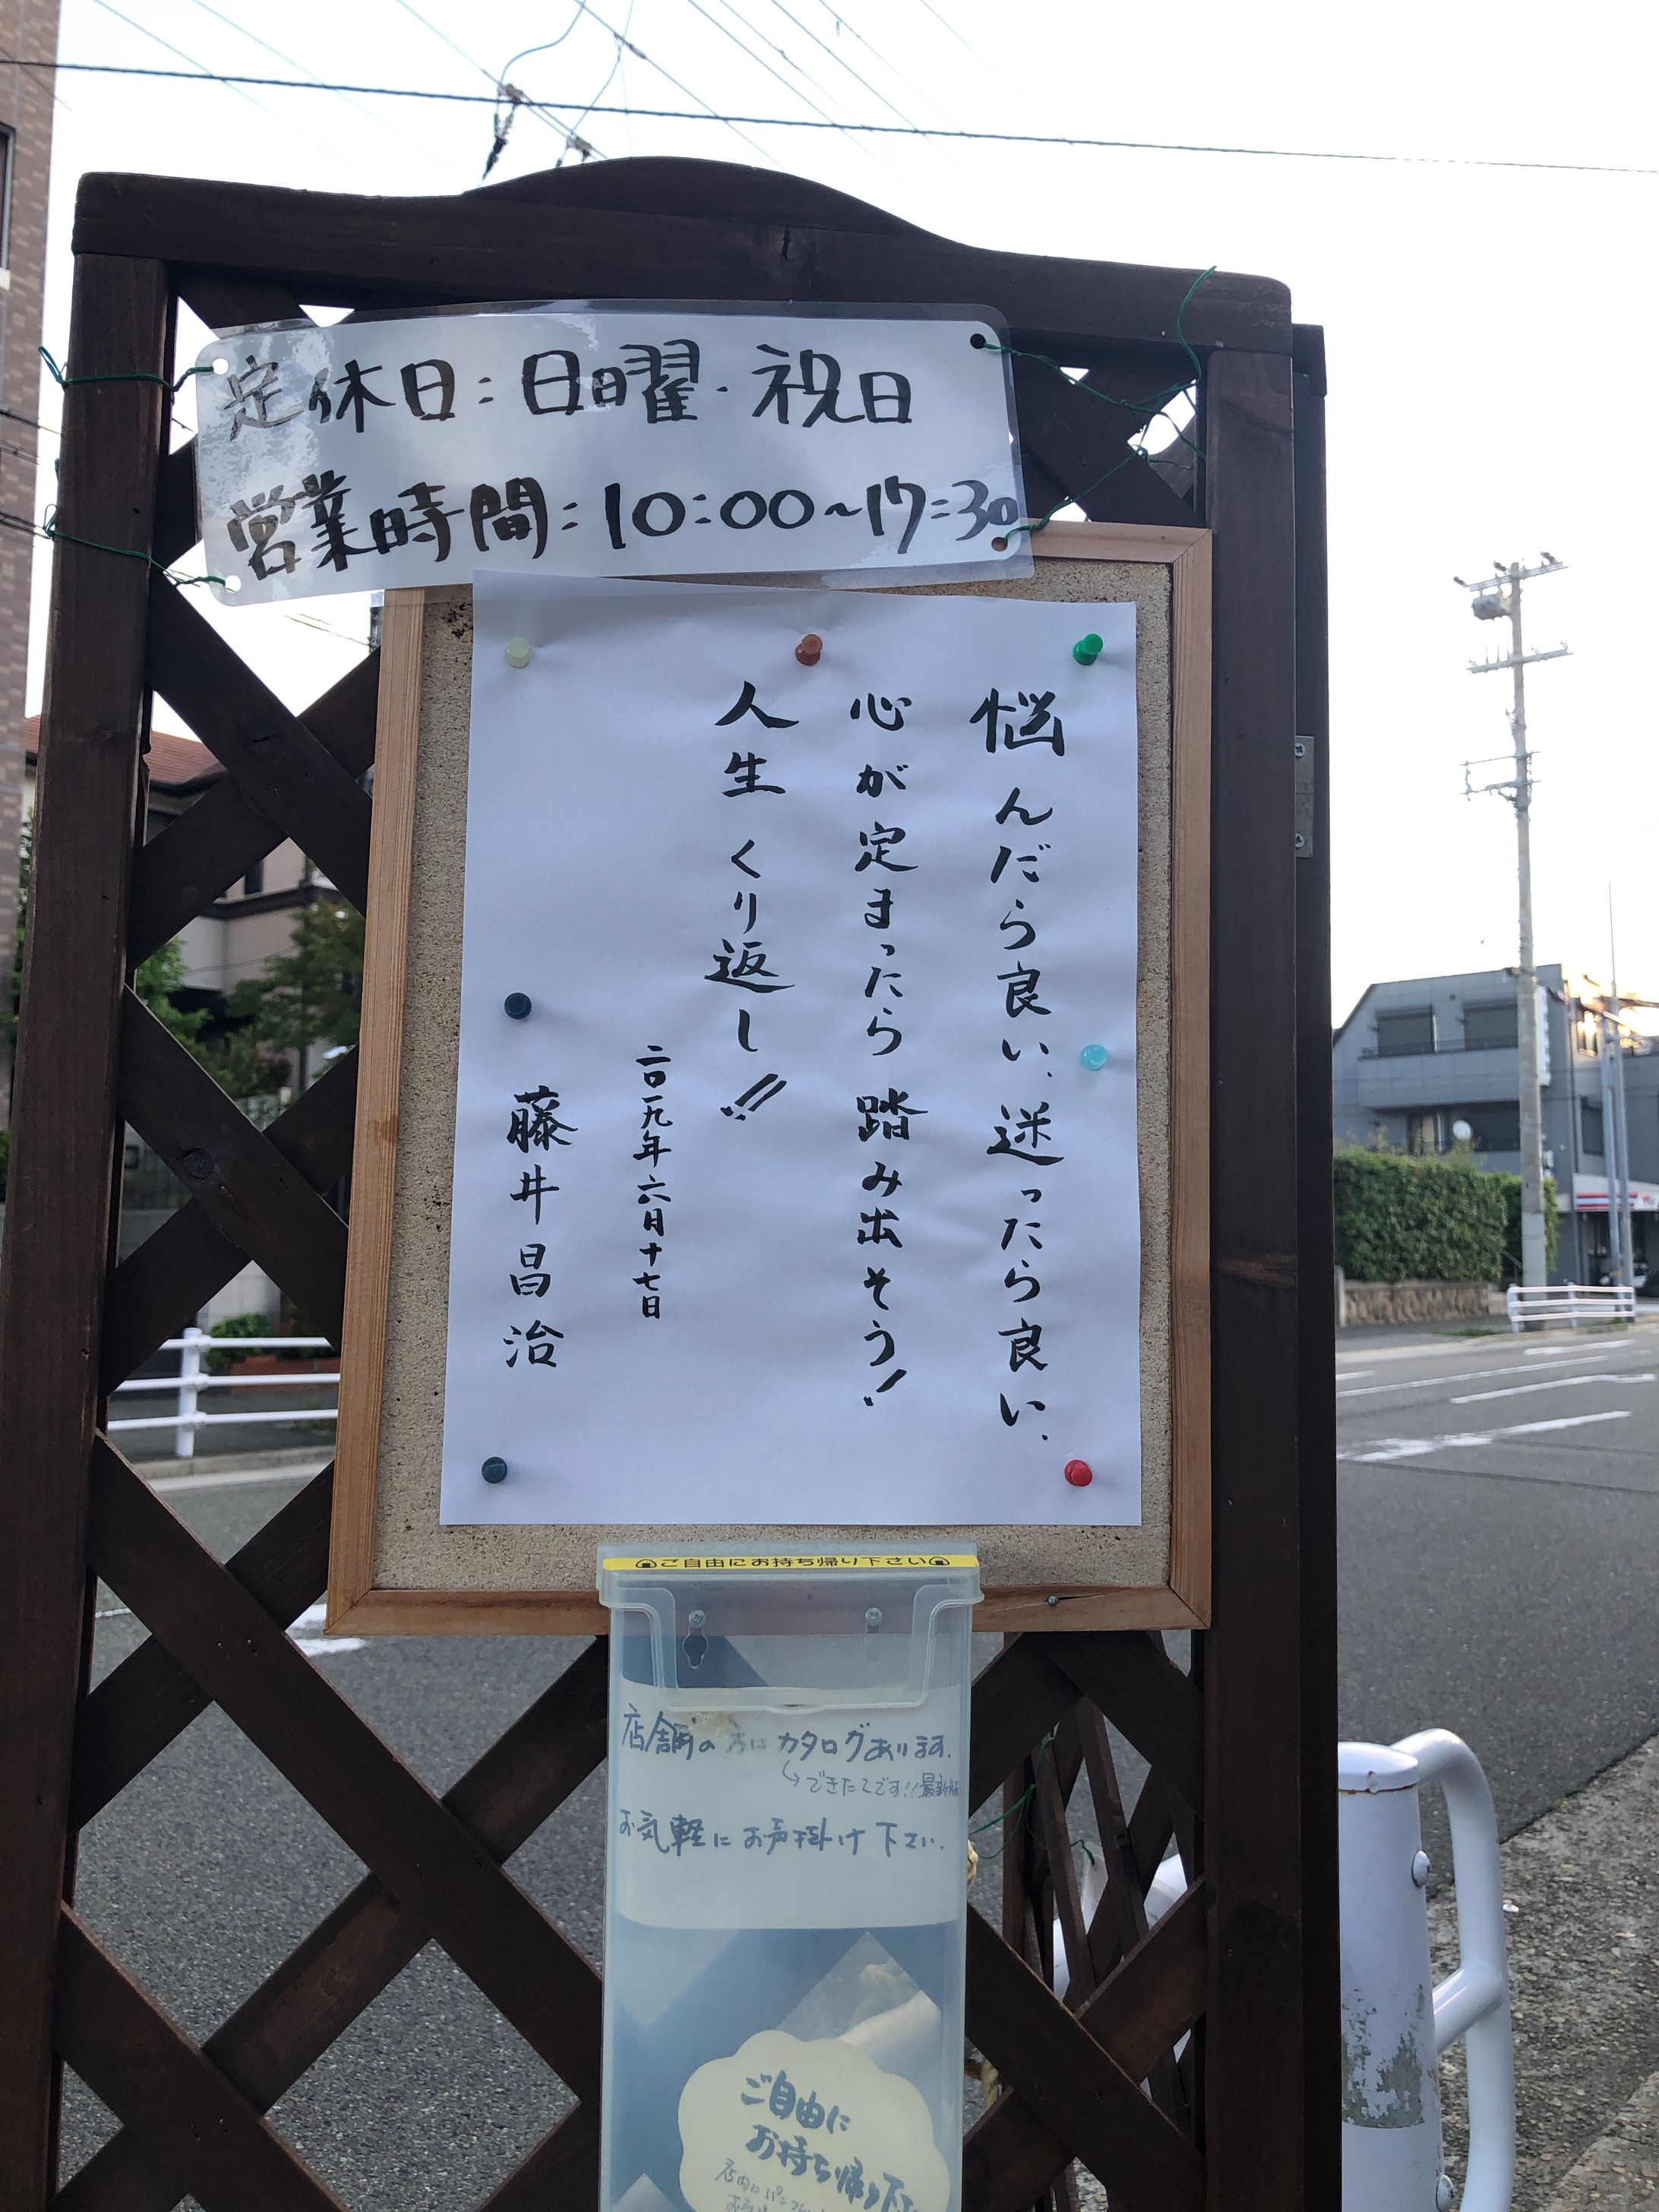 定休日:日曜・祝日
営業時間:10:00~17:30
悩んだら良い、迷ったら良い、
心が定まったら踏み出そう!
人生 くり返し!!
二〇一九年六月十七日
藤井昌治
ご自由にお持ち帰り下さい
店舗の方にカタログあります。
できたてです!!最新版
お気軽にお声掛け下さい。
ご自由に
お持ち帰り下さ
店内にパンフレット